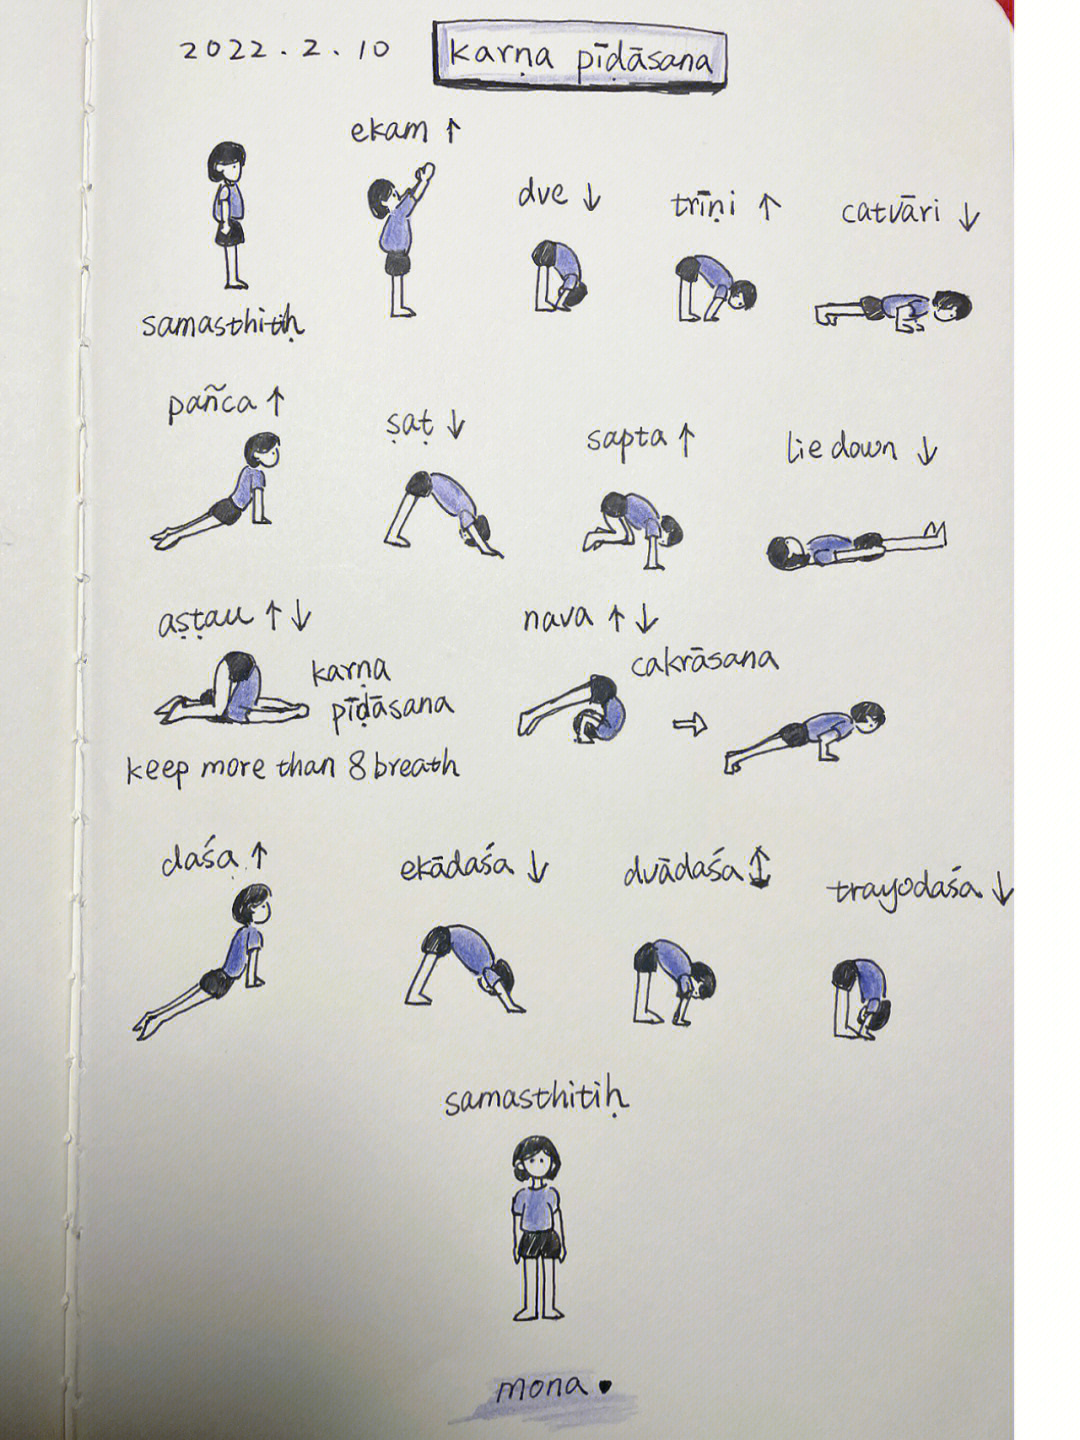 2022.2.10
karṇa pīḍāsana
ekam ↑
dve ↓
trīṇi ↑
catvāri ↓
samasthitiḥ
pañca ↑
ṣaṭ ↓
sapta ↑
lie down ↓
aṣṭau ↑↓
karṇa
pīḍāsana
keep more than 8 breath
nava ↑↓
cakrāsana
⇒
daśa ↑
ekādaśa ↓
dvādaśa ↑
trayodaśa ↓
samasthitiḥ
mona ♥